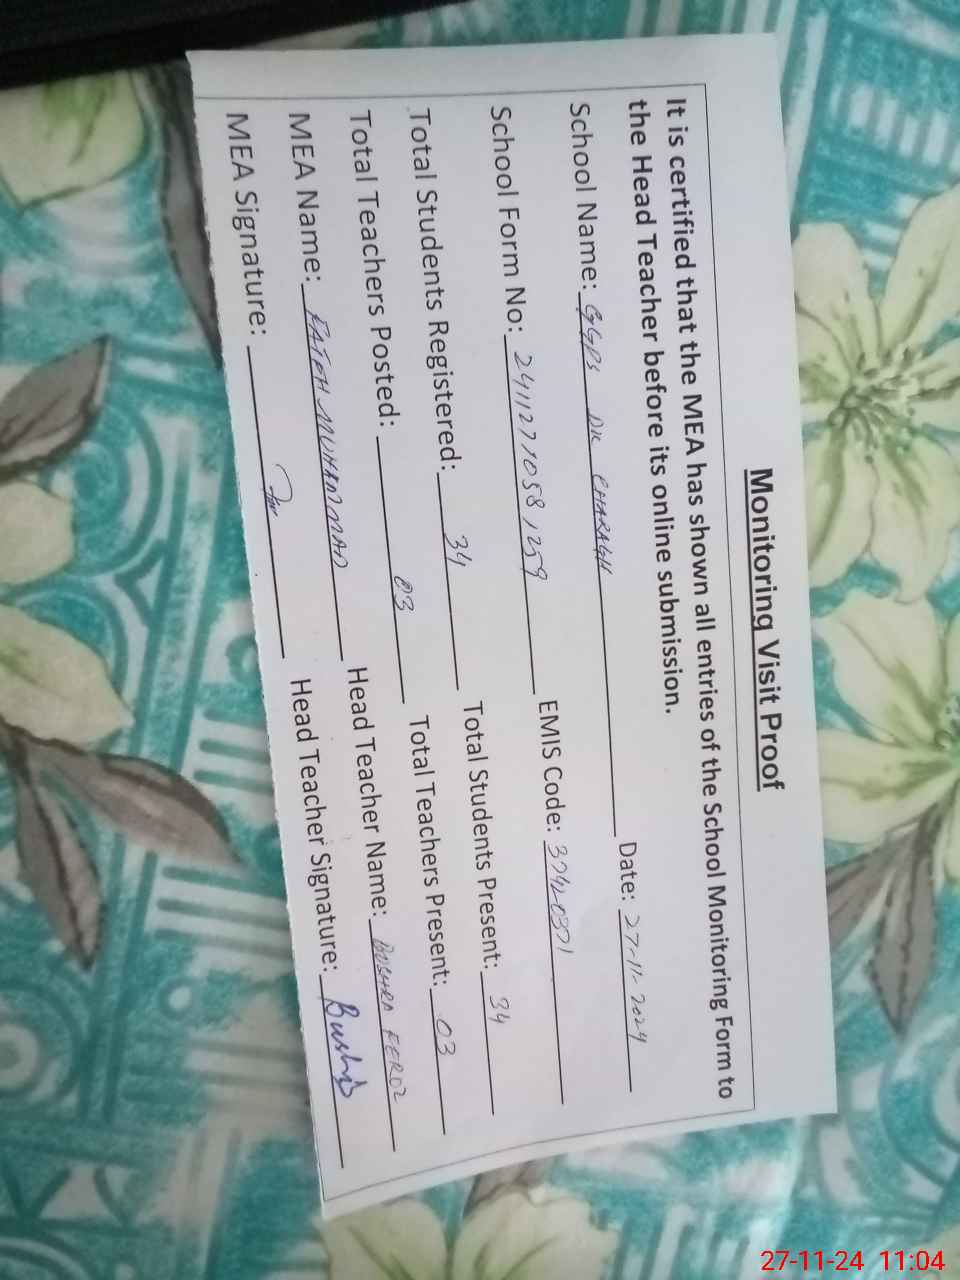 Monitoring Visit Proof
It is certified that the MEA has shown all entries of the School Monitoring Form to
the Head Teacher before its online submission.
School Name: GGPS DK CHARAGH Date: 27-11-2024
School Form No: 241127 EMIS Code:
Total Students Registered: 34 Total Students Present: 34
Total Teachers Posted: 03 Total Teachers Present: 03
MEA Name: FATEH MUHAMMAD Head Teacher Name: BUSHRA FEROZ
MEA Signature: Head Teacher Signature: Bushra
27-11-24 11:04